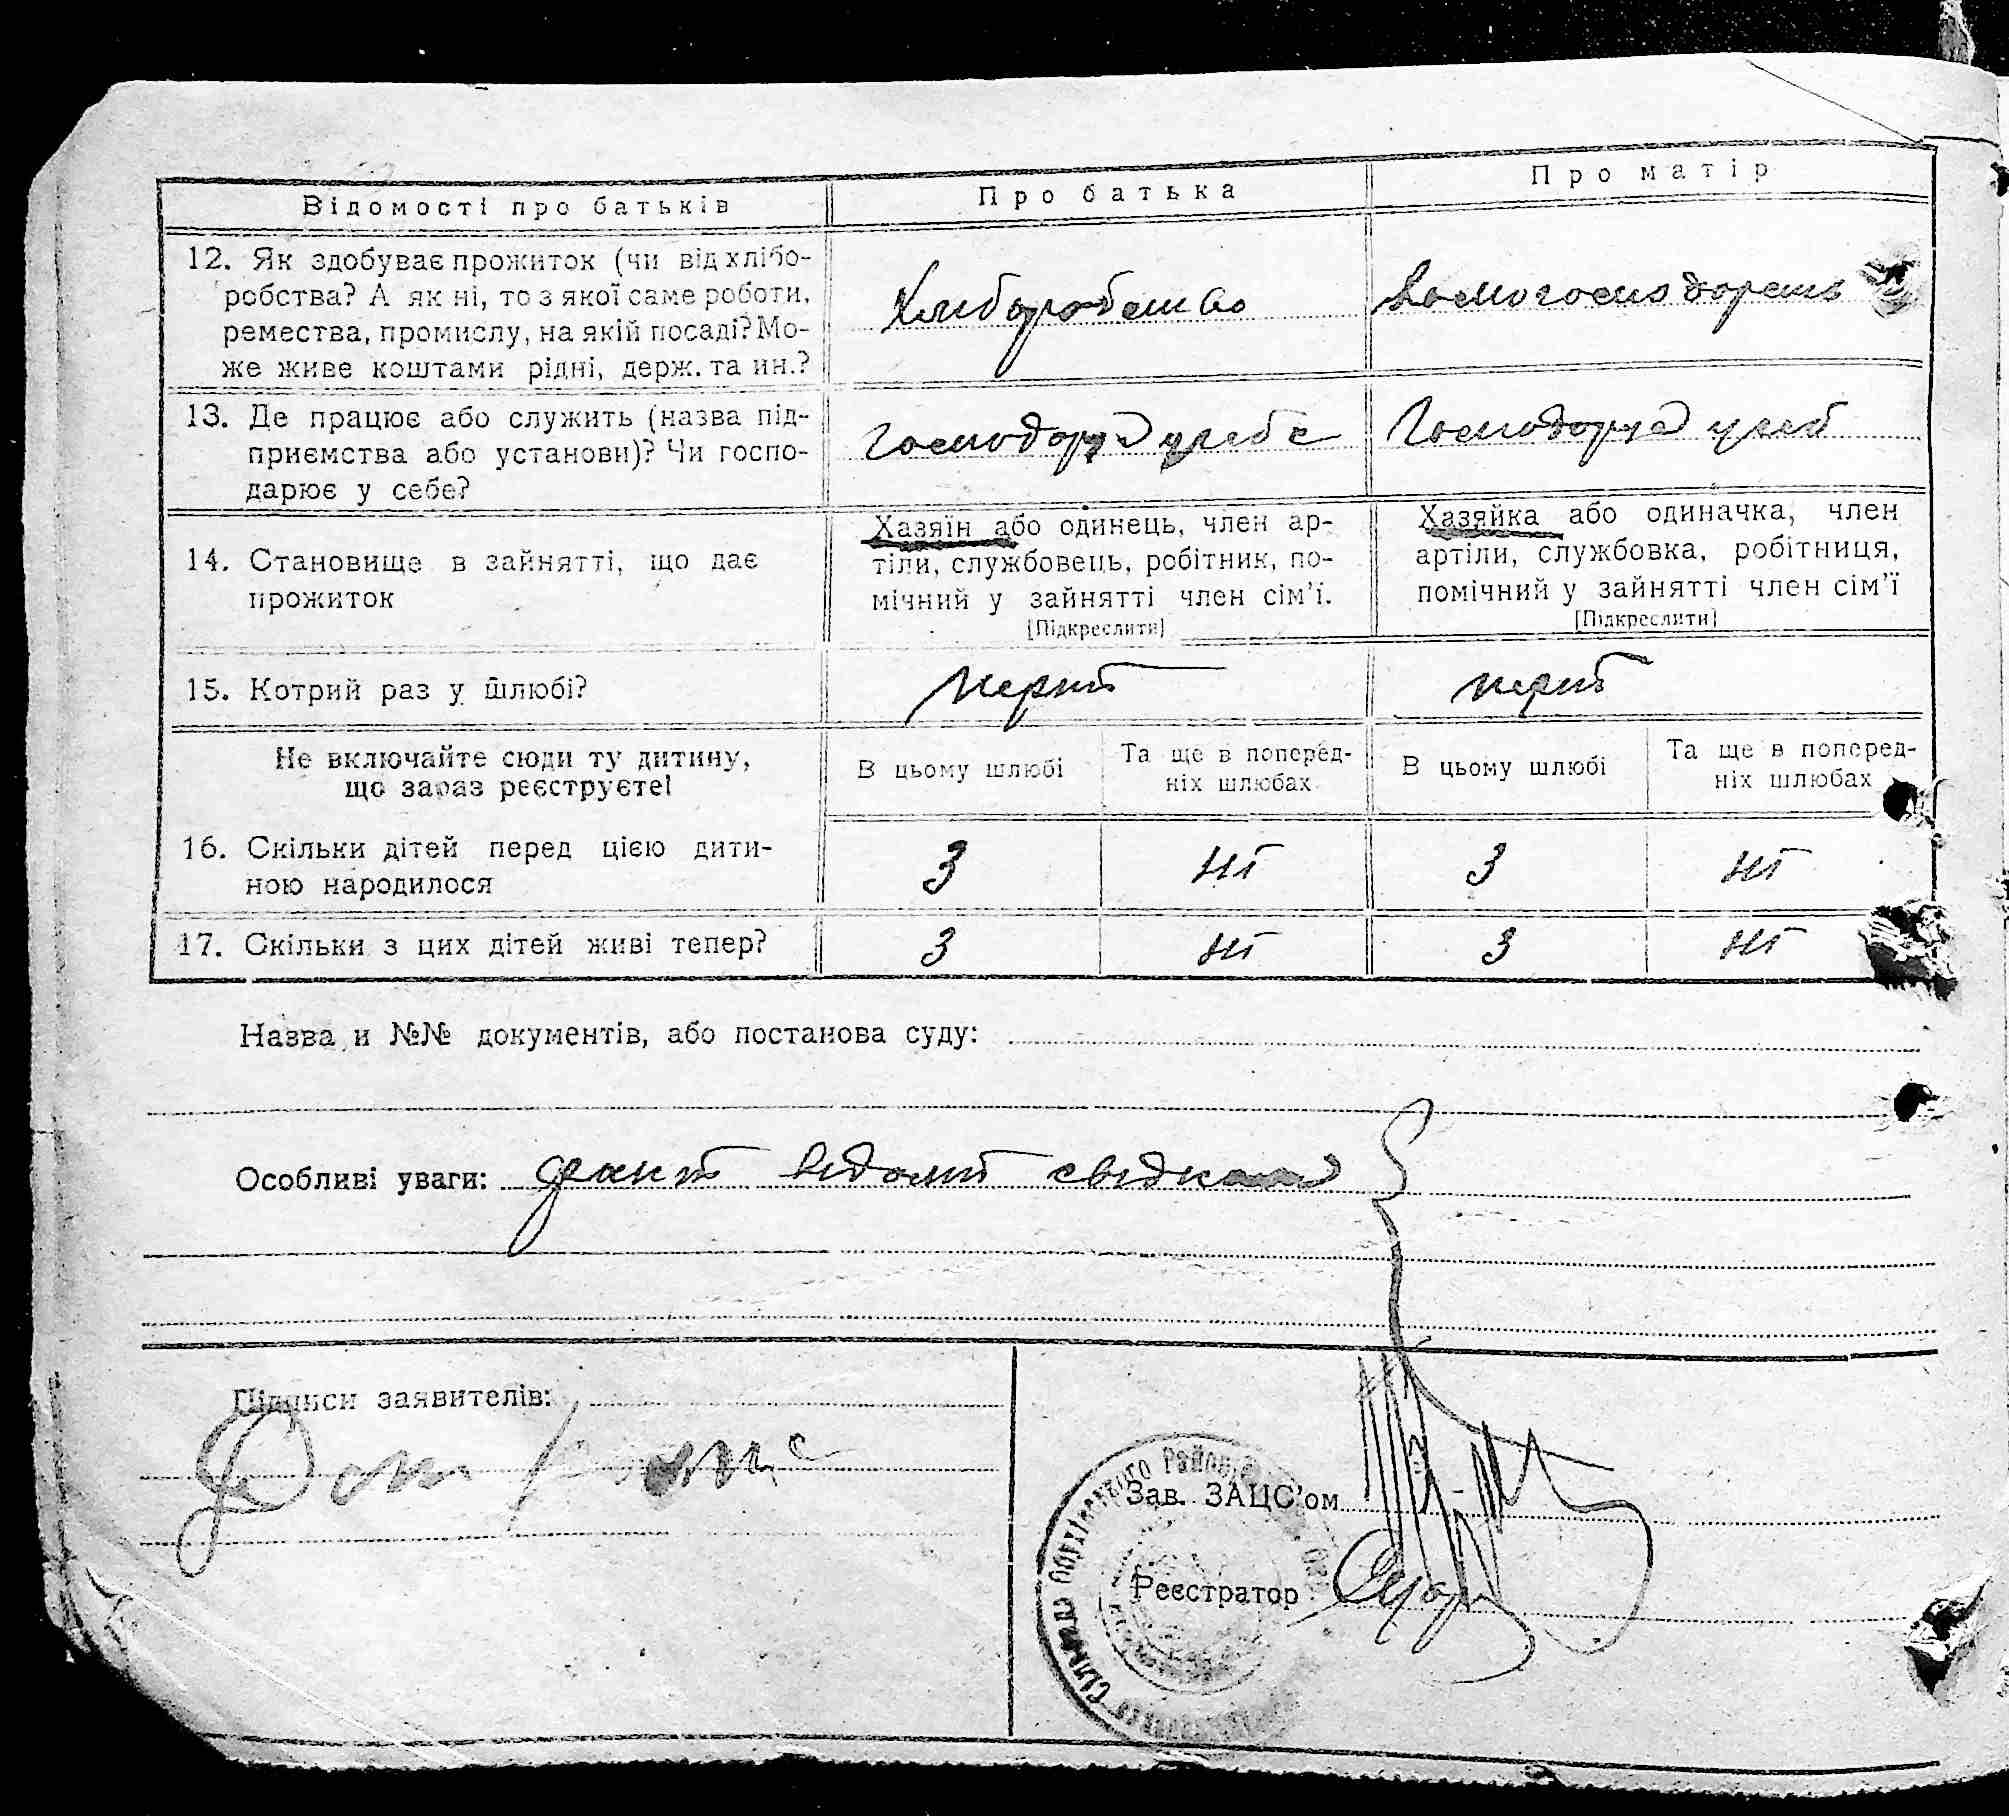 Відомості про батьків
Про батька
Про матір
12. Як здобуває прожиток (чи від хлібо-
робства? А як ні, то з якої саме роботи,
ремества, промислу, на якій посаді? Мо-
же живе коштами рідні, держ. та ин.?
Хліборобство
13. Де працює або служить (назва під-
приємства або установи)? Чи госпо-
дарює у себе?
14. Становище в зайнятті, що дає
прожиток
Хазяїн або одинець, член ар-
тіли, службовець, робітник, по-
мічний у зайнятті член сім'ї.
[Підкреслити]
Хазяйка або одиначка, член
артіли, службовка, робітниця,
помічний у зайнятті член сім'ї
[Підкреслити]
15. Котрий раз у шлюбі?
перший
перший
Не включайте сюди ту дитину,
що зараз реєструєте!
В цьому шлюбі
Та ще в поперед-
ніх шлюбах
В цьому шлюбі
Та ще в поперед-
ніх шлюбах
16. Скільки дітей перед цією дити-
ною народилося
3
ні
3
ні
17. Скільки з цих дітей живі тепер?
3
ні
3
ні
Назва и №№ документів, або постанова суду:
Особливі уваги: факт відомий свідкам
Підписи заявителів:
Зав. ЗАЦС'ом
Реєстратор